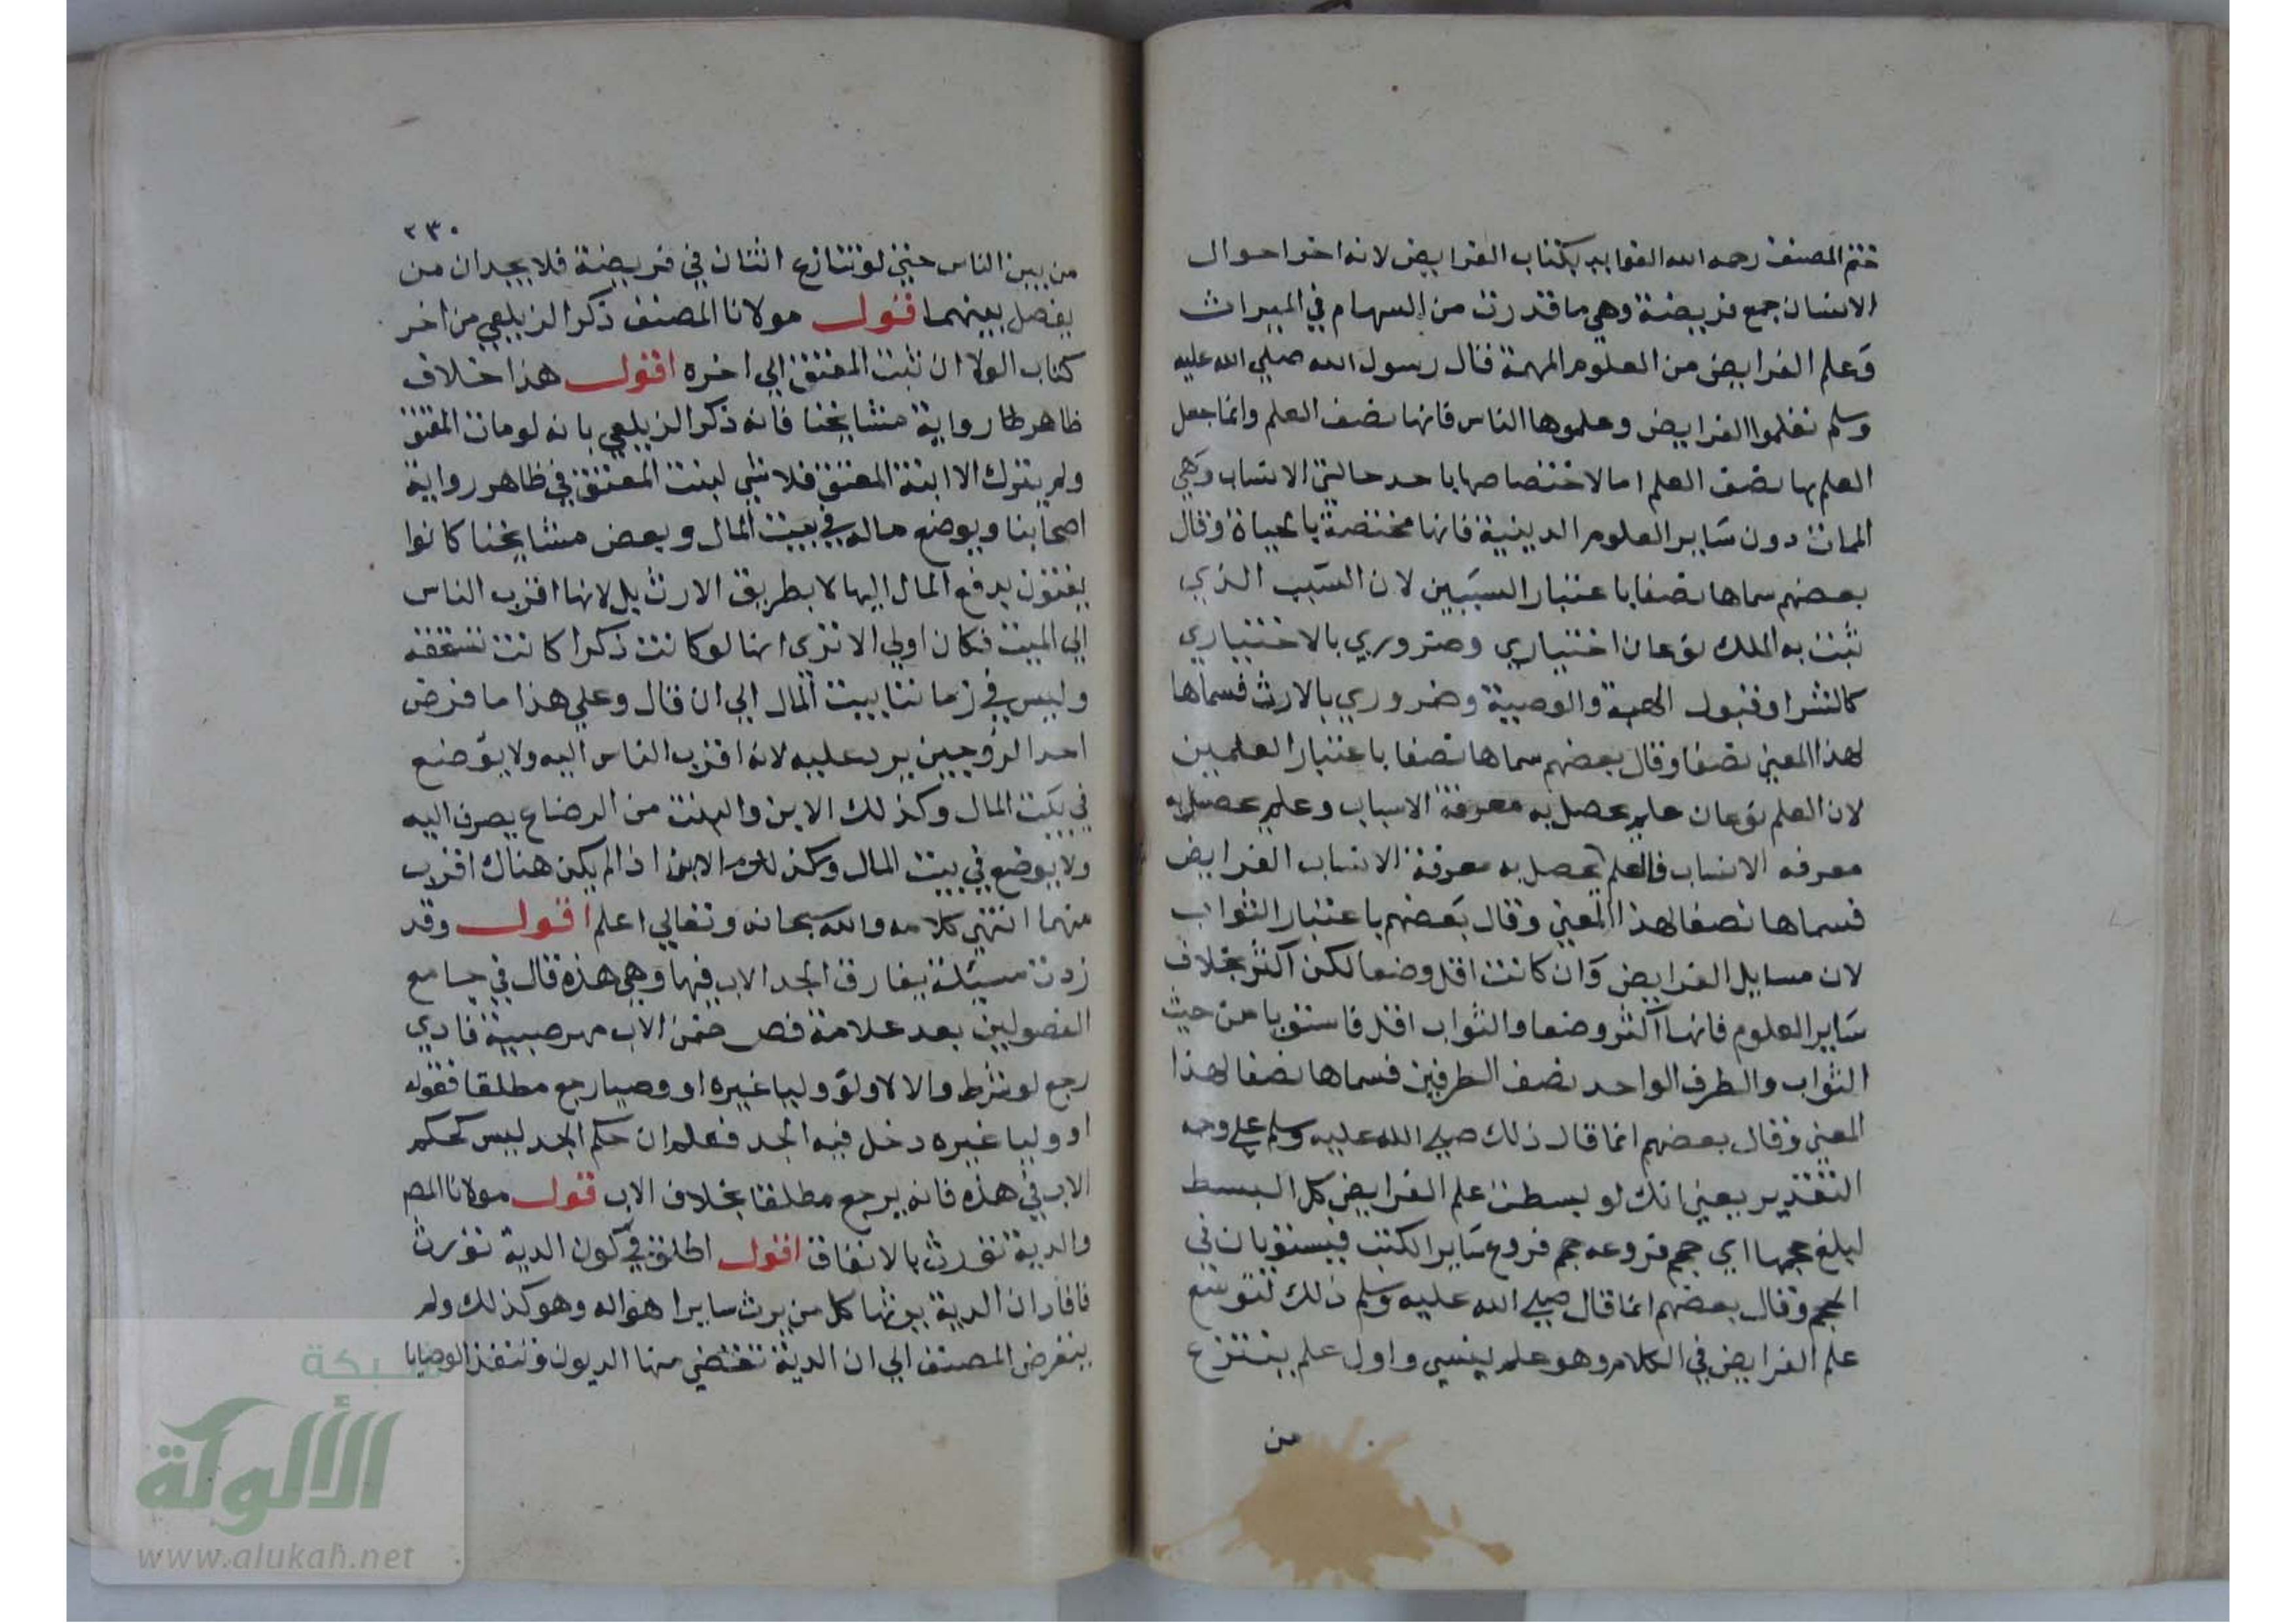 ختم المصنف رحمه الله الفوايد بكتاب الفرايض لانه اخر احوال
الانسان جمع فريضة وهي ما قدرت من السهام في الميراث
وعلم الفرايض من العلوم المهمة قال رسول الله صلي الله عليه
وسلم تعلموا الفرايض وعلموها الناس فانها نصف العلم وانما جعل
العلم بها نصف العلم اما لاختصاصها باحد حالتي الانسان وهي
الممات دون ساير العلوم الدينية فانها مختصة بالحياة وقال
بعضهم سماها نصفا باعتبار السببين لان السبب الذي
يثبت به الملك نوعان اختياري وضروري بالاختياري
كالشرا وقبول الهبة والوصية وضروري بالارث فسماها
لهذا المعني نصفا وقال بعضهم سماها نصفا باعتبار العلمين
لان العلم نوعان علم يحصل به معرفة الاسباب وعلم يحصل به
معرفه الانساب فالعلم يحصل به معرفة الانساب الفرايض
فسماها نصفا لهذا المعني وقال بعضهم باعتبار الثواب
لان مسايل الفرايض وان كانت اقل وضعا لكن اكثر بخلاف
ساير العلوم فانها اكثر وضعا والثواب اقل فاستويا من حيث
الثواب والطرف الواحد نصف الطرفين فسماها نصفا لهذا
المعني وقال بعضهم انما قال ذلك صلي الله عليه وسلم علي وجه
التقدير يعني انك لو بسطت علم الفرايض كل البسط
ليبلغ حجمها اي حجم فروعه حجم فروع ساير الكتب فيستويان في
الحجم وقال بعضهم انما قال صلي الله عليه وسلم ذلك لتوسع
علم الفرايض في الكلام وهو علم ينسي واول علم ينتزع
من
٢٣٠
من بين الناس حتي لو تنازع اثنان في فريضة فلا يجدان من
يفصل بينهما قول مولانا المصنف ذكر الزيلعي من اخر
كتاب الولا ان بنت المعتق الي اخره اقول هذا خلاف
ظاهر رواية مشايخنا فانه ذكر الزيلعي بانه لو مات المعتق
ولم يترك الا ابنة المعتق فلا شي لبنت المعتق في ظاهر رواية
اصحابنا ويوضع ماله في بيت المال وبعض مشايخنا كانوا
يفتون بدفع المال اليها لا بطريق الارث بل لانها اقرب الناس
الي الميت فكان اولي الا تري انها لو كانت ذكرا كانت تستحقه
وليس في زماننا بيت المال الي ان قال وعلي هذا ما فرض
احد الزوجين يرد عليه لانه اقرب الناس اليه ولا يوضع
في بيت المال وكذلك الابن والبنت من الرضاع يصرف اليه
ولا يوضع في بيت المال وكذلك الابن اذا لم يكن هناك اقرب
منهما انتهي كلامه والله سبحانه وتعالي اعلم اقول وقد
زدت مسئلة يفارق الجد الاب فيها وهي هذه قال في جامع
الفصولين بعد علامة فص ضمن الاب مهر صبية فادي
رجع لو شرط والا لا ولو وليا غيره او وصيا رجع مطلقا فقوله
او وليا غيره دخل فيه الجد فعلم ان حكم الجد ليس كحكم
الاب في هذه فانه يرجع مطلقا بخلاف الاب قول مولانا المص
والدية تورث بالاتفاق اقول اطلق في كون الدية تورث
فافاد ان الدية يرثها كل من يرث ساير امواله وهو كذلك ولم
يتعرض المصنف الي ان الدية تقتضي منها الديون وتنفذ الوصايا
شبكة
الألوكة
www.alukah.net